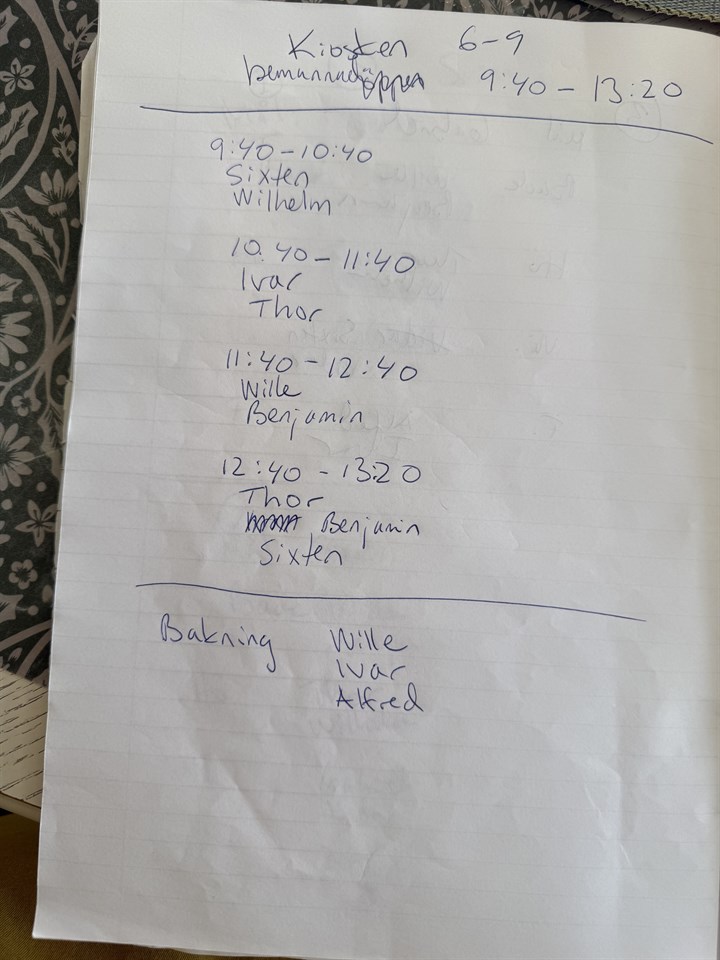 Kiosken 6-9
bemannad öppen 9:40 - 13:20
9:40-10:40
Sixten
Wilhelm
10.40 - 11:40
Ivar
Thor
11:40 - 12:40
Wille
Benjamin
12:40 - 13:20
Thor
Benjamin
Sixten
Bakning Wille
Ivar
Alfred